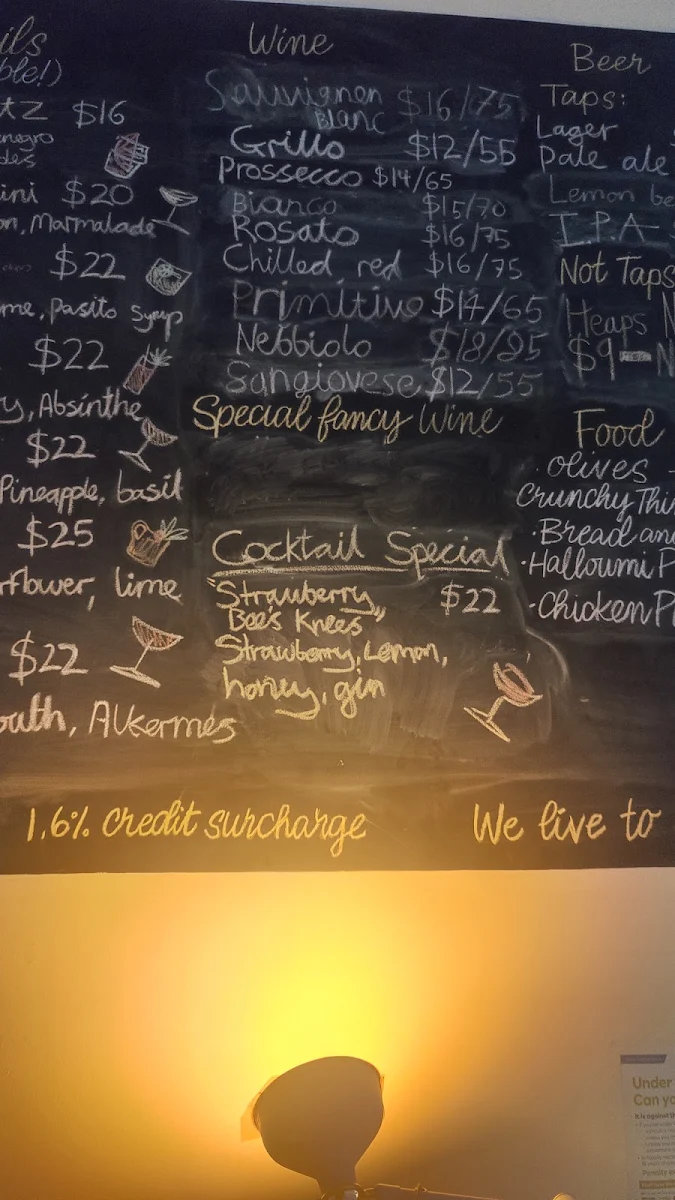 ils
ble!)
tz $16
enegro
des
ini $20
on, Marmalade
$22
me, pasito syrup
$22
y, Absinthe
$22
Pineapple, basil
$25
rflower, lime
$22
outh, Alkermes
Wine
Sauvignon Blanc $16/75
Grillo $12/55
Prossecco $14/65
Bianco $15/70
Rosato $16/75
Chilled red $16/75
Primitivo $14/65
Nebbiolo $18/85
Sangiovese $12/55
Special fancy Wine
Cocktail Special
"Strawberry $22
Bee's Knees"
Strawberry, Lemon,
honey, gin
Beer
Taps:
Lager
Pale ale
Lemon be
IPA
Not Taps
Heaps N
$9 - N
Food
· olives -
Crunchy Thi
· Bread an
· Halloumi P
· Chicken P
1.6% credit surcharge
We live to
Under
Can yo
It is against th